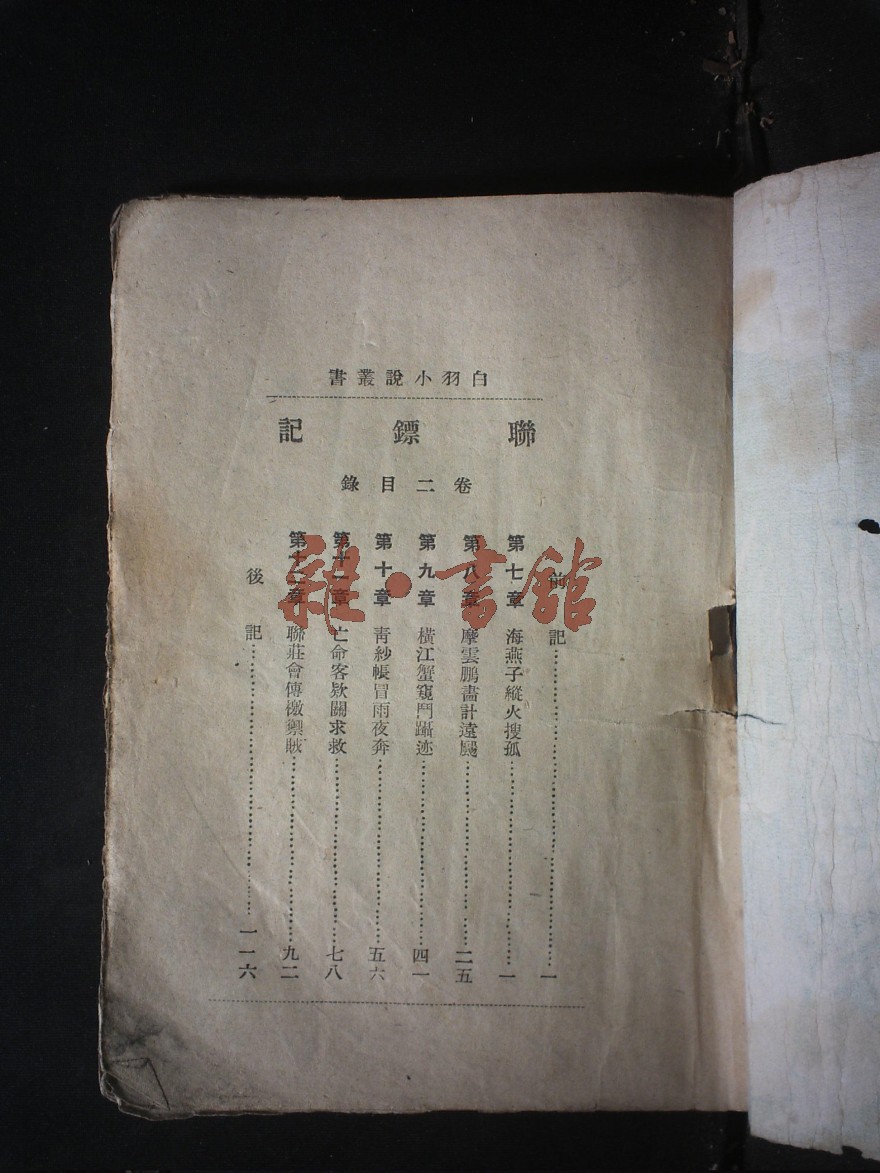 白羽小說叢書
聯鏢記
卷二目錄
前記……一
第七章 海燕子縱火搜孤……一
第八章 摩雲鵬畵計遠颺……二五
第九章 橫江蟹窺門躡迹……四一
第十章 靑紗帳冒雨夜奔……五六
第十一章 亡命客欵關求救……七八
第十二章 聯莊會傳檄禦賊……九二
後記……一一六
雜·書館